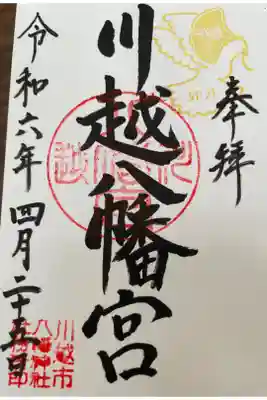 奉拝
川越八幡宮
令和六年四月二十五日
川越市
八幡神社
社務所印